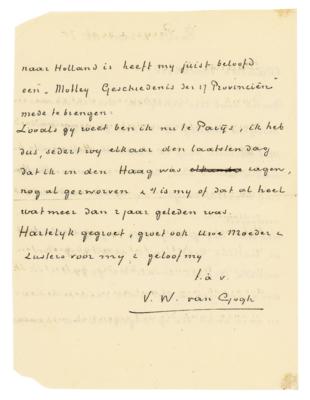 naar Holland is heeft my juist beloofd
een „Motley Geschiedenis der 17 Provinciën"
mede te brengen.
Zooals gy weet ben ik nu te Parijs, ik heb
dus, sedert wy elkaar den laatsten dag
dat ik in den Haag was elkande zagen,
nog al gezworven & 't is my of dat al heel
wat meer dan 2 jaar geleden was.
Hartelyk gegroet, groet ook Uwe Moeder &
Zusters voor my, & geloof my
t. à v.
V. W. van Gogh